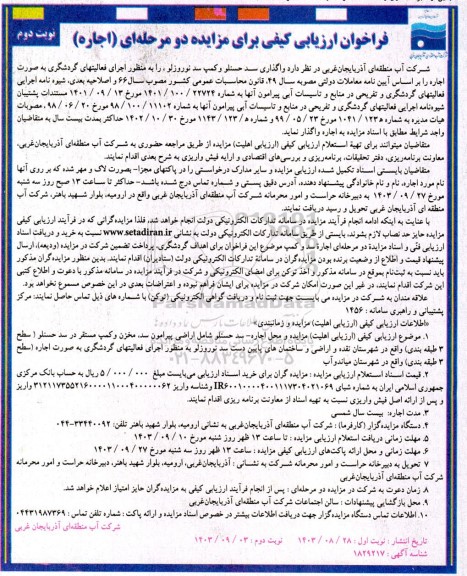 فراخوان ارزیابی کیفی برای مزایده دو مرحله‌ای (اجاره)
نوبت دوم
شرکت آب منطقه‌ای آذربایجان‌غربی در نظر دارد واگذاری سد حسنلو وکمپ سد نوروزلو ، را به منظور اجرای فعالیتهای گردشگری به صورت
اجاره را بر اساس آیین نامه معاملات دولتی مصوبه سال ۴۹، قانون محاسبات عمومی کشور مصوب سال ۶۶ و اصلاحیه بعدی، شیوه نامه اجرایی
فعالیتهای گردشگری و تفریحی در منابع و تاسیسات آبی پیرامون آنها به شماره ۱۰۰ / ۲۲۷۲۴ / ۱۴۰۱ مورخ ۱۳ / ۰۹ / ۱۴۰۱ مستندات پشتیبان
شیوه‌نامه اجرایی فعالیتهای گردشگری و تفریحی در منابع و تاسیسات آبی پیرامون آنها به شماره ۱۱۱۰۲ / ۱۰۰ / ۹۸ مورخ ۲۰ / ۰۶ / ۹۸، مصوبات
هیات مدیره به شماره ه ۱۲۳ / ۱۰۴۱ مورخ ۲۳ / ۰۵ / ۹۹ و شماره ه ۱۲۳ / ۱۱۴۳ مورخ ۳۰ / ۱۰ / ۱۴۰۲ حداکثر بمدت بیست سال به متقاضیان
واجد شرایط مطابق با اسناد مزایده به اجاره واگذار نماید.
متقاضیان میتوانند برای تهیه استعلام ارزیابی کیفی (ارزیابی اهلیت) مزایده از طریق مراجعه حضوری به شرکت آب منطقه‌ای آذربایجان‌غربی،
معاونت برنامه‌ریزی، دفتر تحقیقات، برنامه‌ریزی و بررسی‌های اقتصادی و ارایه فیش واریزی به شرح بعدی اقدام نمایند.
متقاضیان بایستی اسناد تکمیل شده ارزیابی مزایده و سایر مدارک درخواستی را در پاکتهای مجزا- بصورت لاک و مهر شده که بر روی آنها
نام مورد اجاره، نام و نام خانوادگی پیشنهاد دهنده، آدرس دقیق پستی و شماره تماس درج شده باشد- حداکثر تا ساعت ۱۳ صبح روز سه شنبه
مورخ ۲۷ / ۰۹ / ۱۴۰۳ به دبیرخانه حراست و امور محرمانه شرکت آب منطقه‌ای آذربایجان غربی واقع در ارومیه، بلوار شهید باهنر، شرکت آب
منطقه ای آذربایجان غربی تحویل و رسید دریافت نمایند.
با عنایت به اینکه ادامه انجام فرآیند مزایده در سامانه تدارکات الکترونیکی دولت انجام خواهد شد، فلذا مزایده‌گرانی که در فرآیند ارزیابی کیفی
مزایده حایز حد نصاب لازم بشوند، بایستی از طریق سامانه تدارکات الکترونیکی دولت به نشانی www.setadiran.ir نسبت به خرید و دریافت اسناد
ارزیابی فنی و اسناد مزایده در مرحله‌ای اجاره سد و کمپ موضوع این فراخوان برای اهداف گردشگری، پرداخت تضمین شرکت در مزایده (ودیعه)، ارسال
پیشنهاد قیمت و اطلاع از وضعیت برنده بودن مزایده‌گران در سامانه تدارکات الکترونیکی دولت (ستادیران) اقدام نمایند. بدین منظور مزایده‌گران مذکور
باید نسبت به ثبت‌نام بموقع در سامانه مذکور و أخذ توکن برای امضای الکترونیکی و شرکت در فرآیند مزایده در سامانه مذکور با دعوت و اطلاع کتبی
این شرکت اقدام نمایند، در غیر این صورت امکان شرکت در مزایده برای ایشان فراهم نبوده و اعتراضات بعدی در این خصوص مسموع نخواهد بود.
علاقه مندان به شرکت در مزایده می بایست جهت ثبت نام و دریافت گواهی الکترونیکی (توکن) با شماره های ذیل تماس حاصل نمایند: مرکز
پشتیبانی و راهبری سامانه : ۱۴۵۶
«اطلاعات ارزیابی کیفی (ارزیابی اهلیت) مزایده و زمانبندی»
۱. موضوع ارزیابی کیفی (ارزیابی اهلیت) مزایده و محل اجاره– سد حسنلو شامل اراضی پیرامون سد، مخزن وکمپ مستقر در سد حسنلو ( سطح
۳ طبقه بندی) واقع در شهرستان نقده و اراضی و ساختمان های پایین دست سد نوروزلو به منظور اجرای فعالیتهای گردشگری به صورت اجاره (سطح
۳ طبقه بندی) واقع در شهرستان میاندوآب
۲. قیمت اسناد استعلام ارزیابی مزایده : مزایده گران برای خرید اسناد ارزیابی می‌بایست مبلغ ۵ / ۰۰۰ / ۰۰۰ ریال به حساب بانک مرکزی
جمهوری اسلامی ایران به شماره شبای IR۶۰۰۱۰۰۰۰۴۰۰۱۱۱۷۳۰۴۰۲۱۰۶۹ وشناسه واریز
و پس از ارائه اصل فیش واریزی نسبت به تهیه اسناد از معاونت برنامه ریزی اقدام نمایند.
۳. مدت اجاره: بیست سال شمسی
۴. دستگاه مزایده‌گزار (کارفرما) : شرکت آب منطقه‌ای آذربایجان‌غربی به نشانی ارومیه، بلوار شهید باهنر تلفن: ۳۳۴۴۰۰۹۲-۰۴۴
۵. مهلت زمانی دریافت استعلام ارزیابی مزایده : تا ساعت ۱۳ ظهر روز شنبه مورخ ۱۰ / ۰۹ / ۱۴۰۳
۶. مهلت زمانی و محل ارائه پاکت‌های ارزیابی کیفی مزایده : تا ساعت ۱۳ ظهر روز سه شنبه مورخ ۲۷ / ۰۹ / ۱۴۰۳
۷. تحویل به دبیرخانه حراست و امور محرمانه شرکت به نشانی : آذربایجان‌غربی، ارومیه، بلوار شهید باهنر، دبیرخانه حراست و امور محرمانه
شرکت آب منطقه‌ای آذربایجان‌غربی
۸. زمان دعوت به شرکت در مزایده دو مرحله‌ای : پس از انجام فرآیند ارزیابی کیفی به مزایده‌گران حایز امتیاز اعلام خواهد شد.
۹. محل بازگشایی پیشنهادات : سالن اجتماعات شرکت آب منطقه‌ای آذربایجان‌غربی
۱۰. اطلاعات تماس دستگاه مزایده‌گزار جهت دریافت اطلاعات بیشتر در خصوص اسناد مزایده و ارائه پاکت : شماره تلفن تماس : ۰۴۴۳۱۹۸۷۳۶۹
شرکت آب منطقه‌ای آذربایجان غربی
تاریخ انتشار : نوبت اول : ۲۸ / ۰۸ / ۱۴۰۳ نوبت دوم : ۰۳ / ۰۹ / ۱۴۰۳
شناسه آگهی : ۱۸۲۹۲۱۷